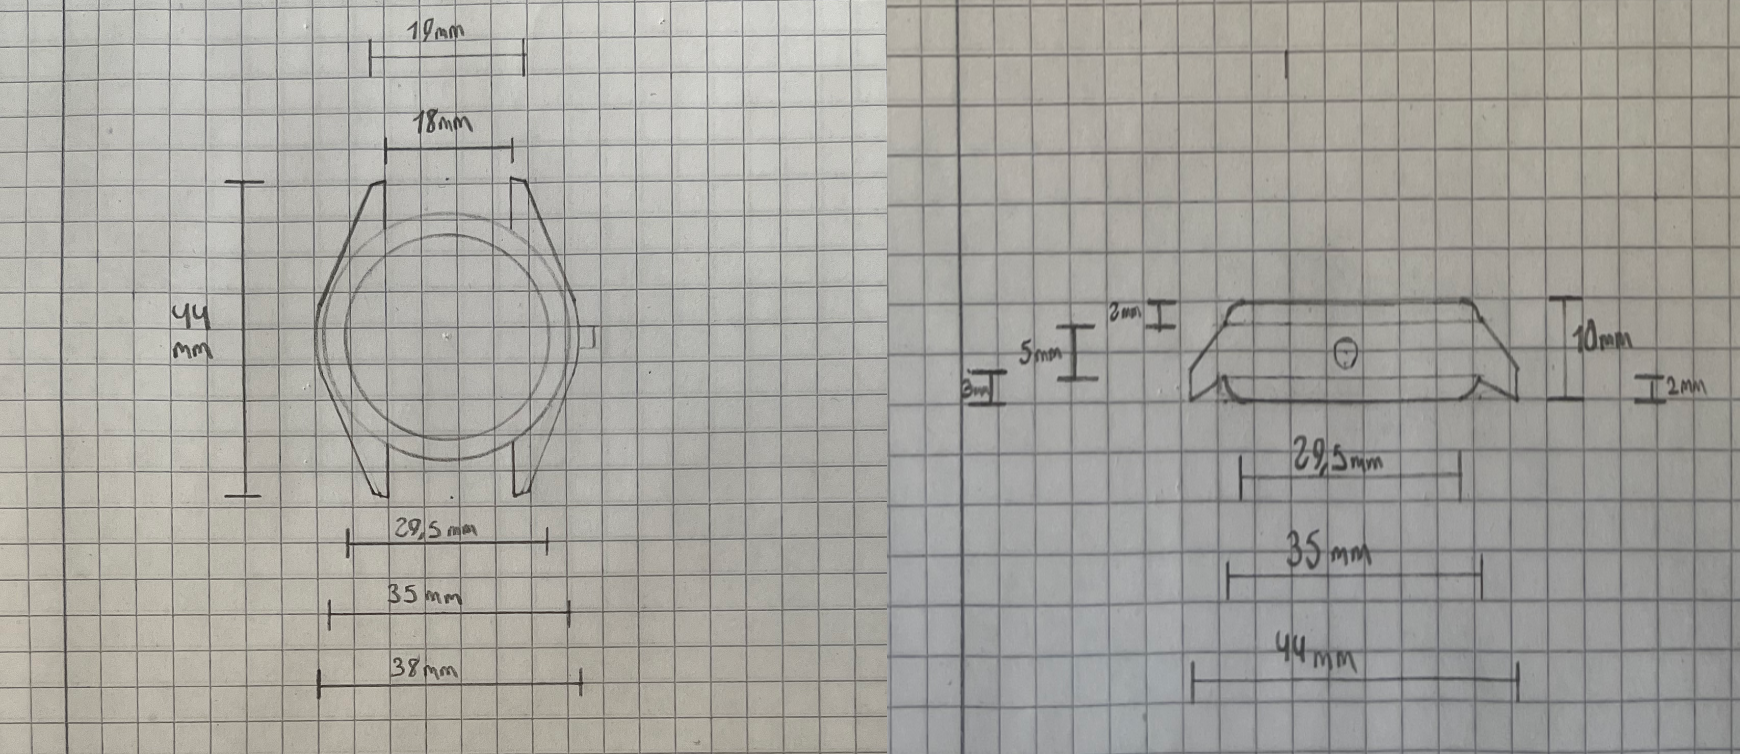 19mm
18mm
44
mm
29,5mm
35mm
38mm
2mm
5mm
3mm
10mm
2mm
29,5mm
35mm
44mm